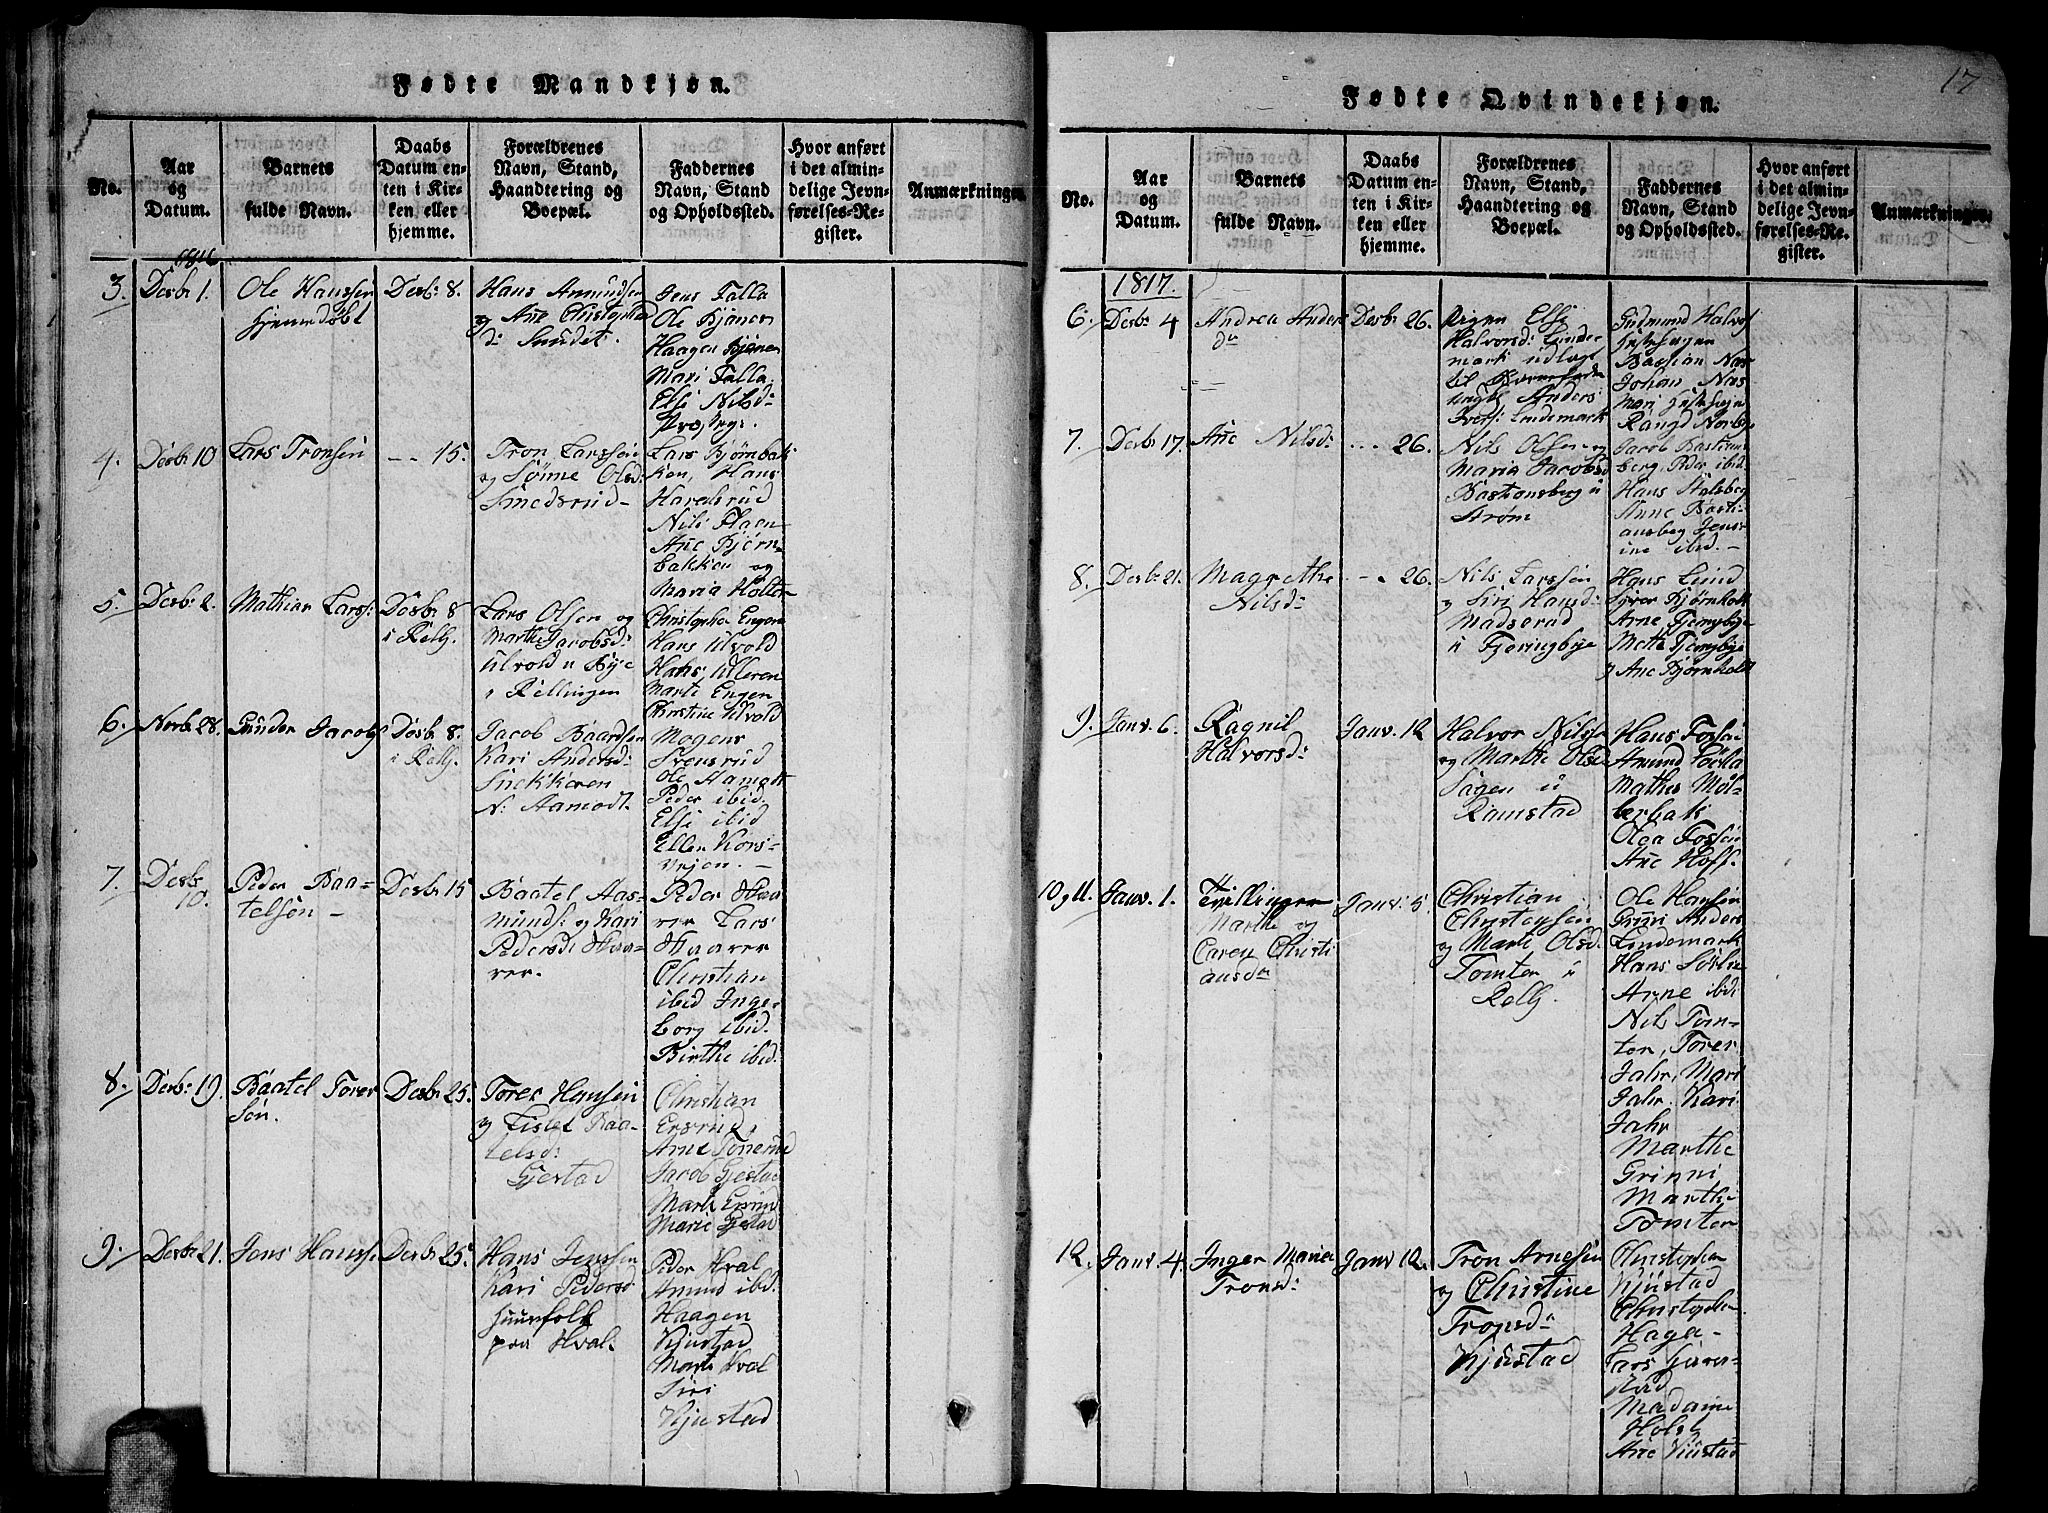 Fødte Mandkjøn.
No.
Aar
og
Datum.
Barnets
fulde Navn.
Daabs
Datum en-
ten i Kir-
ken eller
hjemme.
Forældrenes
Navn, Stand,
Haandtering og
Boepæl.
Faddernes
Navn, Stand
og Opholdssted.
Hvor anført
i det almin-
delige Jevn-
førelses-Re-
gister.
Anmærkninger.
1816
3.
Desbr 1.
Ole Hanssen
hjemmedøbt
Desbr: 8.
Hans Amundsen
og Ane Christophe
d: Sundet.
Jens Falla
Ole Kjæner
Haagen Kjæner
Mari Falla
Elsi Nilsd:
4.
Desbr 10
Lars Tronsen
-- 15.
Tron Larssen
og Sønne Olsd:
Smedsrud-
Lars Bjørnbak
ken, Hans
Haralsrud
Nils Flaen-
Ane Bjørn-
bakken og
Maria Holter
5.
Desbr: 2.
Mathias Larss:
Desbr 8
i Relg.
Lars Olsen og
Marthe Jacobsd:
Ulvold u Bye
i Rellingen
Christopher Engen
Hans Ulvold
Hans Ulleren
Marte Engen
Christine Ulvold
6.
Novb. 28.
Gunder Jacobs
Desbr 8.
i Relg.
Jacob Baardsen
Kari Andersd:
Snekkeren
N: Aamodt.
Mogens
Svensrud
Ole Aamodt
Peder ibid.
Elsi ibid
Ellen Kors-
vejen. -
7.
Desbr
10.
Peder Baa-
telsøn -
Desbr 15
Baatel Aas-
munds: og Kari
Pedersd: Haa-
rer.
Peder Haa-
rer Lars
Haarer
Christian
ibid Inger
borg ibid.
Birthe ibid.
8.
Desbr: 19.
Baatel Torer
søn.
Desbr 25.
Torer Hansen
og Lislet Baa-
telsd:
Gjestad
Christian
Ersrud,
Arne Tonerud
Jacob Gjestad
Marte Ersrud
Marie Gjestad
9.
Desbr 21.
Jens Hansse
Desbr 25.
Hans Jenssen
Kari Pedersd
huusfolk
paa Hval.
Peder Hval
Amund ibid.
Haagen
Kjustad
Marte Hval
Siri
Kjustad
17
Fødte Qvindekjøn.
No.
Aar
og
Datum.
Barnets
fulde Navn.
Daabs
Datum en-
ten i Kir-
ken eller
hjemme.
Forældrenes
Navn, Stand,
Haandtering og
Boepæl.
Faddernes
Navn, Stand
og Opholdssted.
Hvor anført
i det almin-
delige Jevn-
førelses-Re-
gister.
Anmærkninger.
1817.
6.
Desbr 4
Andrea Anders
dr
Desbr 26.
Pigen Elsi
Halvorsd: Linde
mark udlagt
til
ungk Anders
Ivers: Lindemark
Gudmund Halvos
Bastian Nor
Johan Nors
Mari
Rangd Norbye
7.
Desbr 17.
Ane Nilsd:
--- 26.
Nils Olsen og
Maria Jacobsd
Bastiansberg u
Strøm
Jacob Bastians
berg. Peder ibid
Hans Stalsberg
Anne Basti-
ansberg Jens
ine ibid. -
8.
Desbr 21.
Magrethe
Nilsd:
-- 26.
Nils Larssen
og Siri Hansd:
Madserud
u Fjeringbye
Hans Lund
Siver Bjørnholt
Arne Fjeringbye
Mette Fjeringbye
og Ane Bjørnholt
9.
Janv. 6.
Ragnil
Halvorsd:
Janv. 12
Halvor Nilss
og Marthe Olsd
Sagen u
Ramstad
Hans Fossen
Amund Talla
Mathis Møl-
lerbak
Olea Fossen
Ane Hoff.
10 og 11.
Janv. 1.
Tvillinger
Marthe og
Caren Christi
ansdr
Janv: 5.
Christian
Christensen
og Marte Olsd.
Tomter u
Relg.
Ole Hansen
Guri Anders
Lindemark
Hans Sørlie
Arne ibid
Nils Tom-
ter, Torer
Jahr, Mari
Jahr. Kari
Jahr
Marthe
Grinni
Marthe
Tomter
12.
Janv. 4.
Inger Maria
Tronsd:
Janv 12.
Tron Arnesen
og Christine
Tronsdr
Kjustad
Christopher
Kjustad
Christopher
Haga-
Lars
Madame
Holst
Ane Kjustad